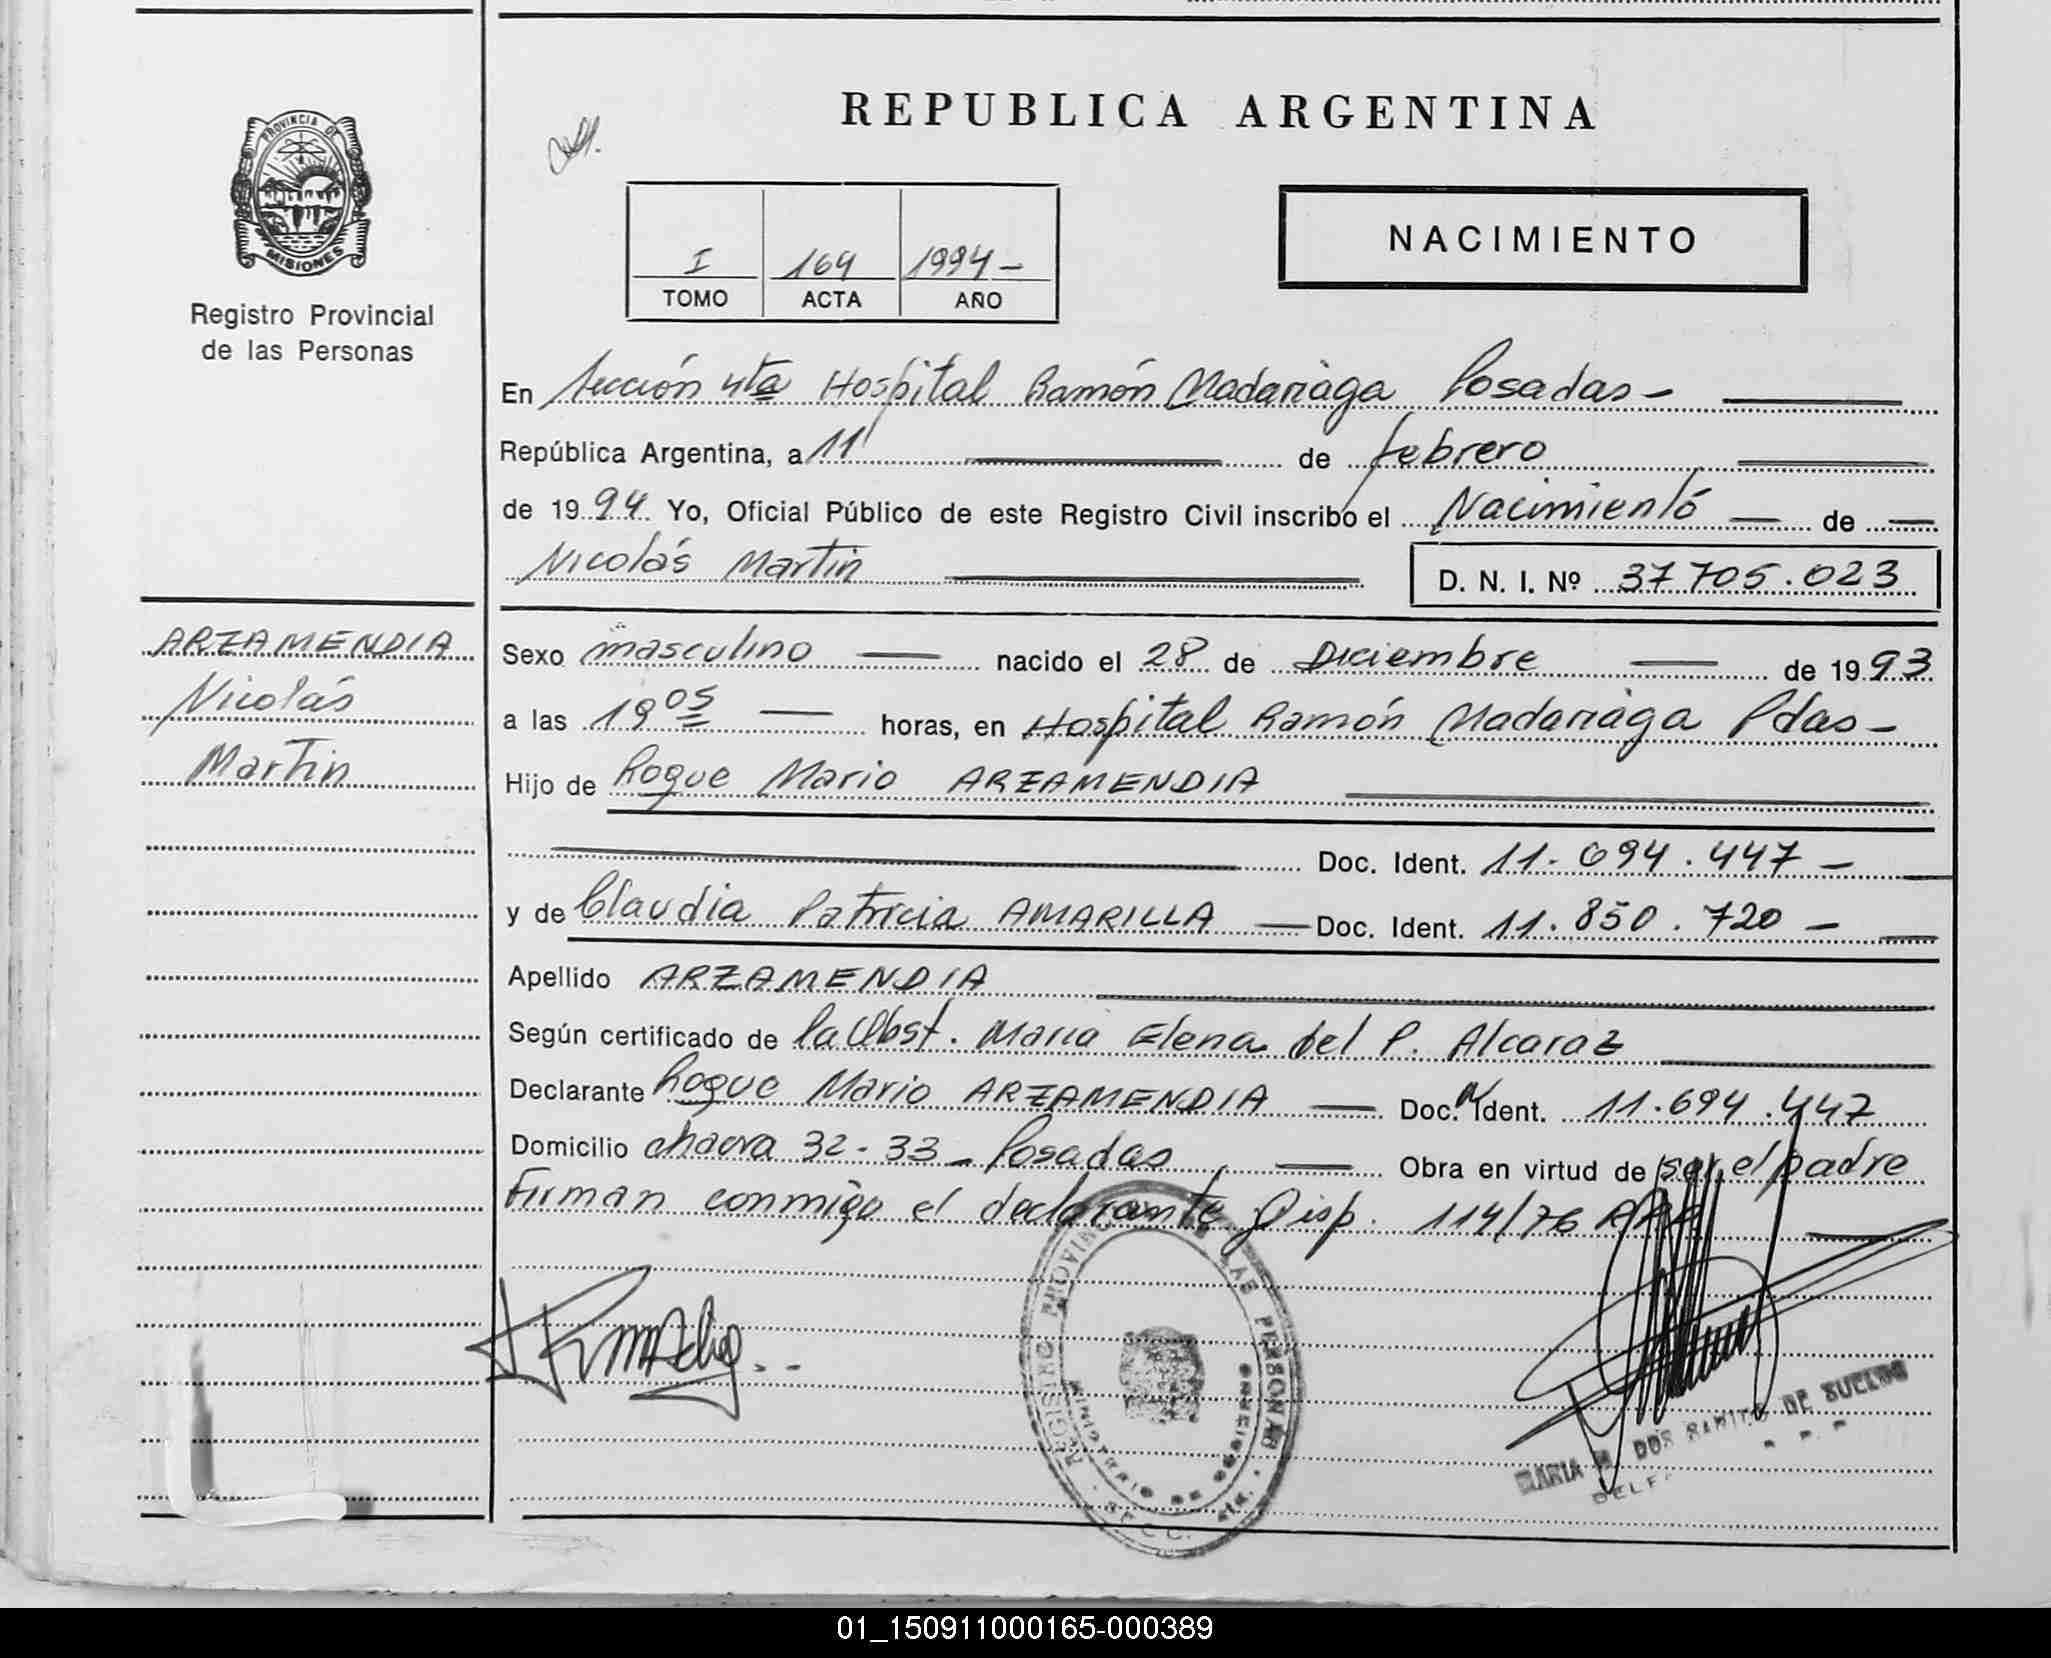 REPUBLICA ARGENTINA
PROVINCIA DE
MISIONES
Registro Provincial
de las Personas
I 164 1994 -
TOMO ACTA AÑO
NACIMIENTO
En Sección 4ta Hospital Ramón Madariaga Posadas -
República Argentina, a 11 de febrero
de 1994 Yo, Oficial Público de este Registro Civil inscribo el Nacimiento de
Nicolás Martin D. N. I. Nº 37.705.023
ARZAMENDIA
Nicolás
Martin
Sexo masculino nacido el 28 de Diciembre de 1993
a las 19 05 horas, en Hospital Ramón Madariaga Pdas -
Hijo de Roque Mario ARZAMENDIA
Doc. Ident. 11.694.447 -
y de Claudia Patricia AMARILLA Doc. Ident. 11.850.720 -
Apellido ARZAMENDIA
Según certificado de la Obst. Maria Elena del P. Alcaraz
Declarante Roque Mario ARZAMENDIA Doc. Ident. 11.694.447
Domicilio chacra 32-33 - Posadas Obra en virtud de ser el padre
Firman conmigo el declarante Disp. 114/76
REGISTRO PROVINCIAL DE LAS PERSONAS
MINISTERIO DE GOBIERNO
SECC. 4ta.
MARIA M. DOS SANTOS DE SUELDO
01_150911000165-000389